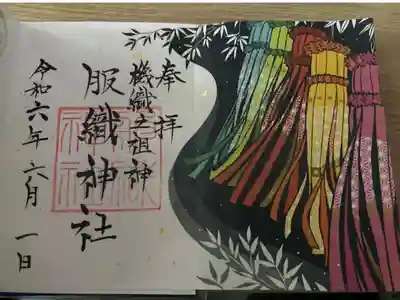 奉拝
機織之祖神
服織神社
令和六年六月一日